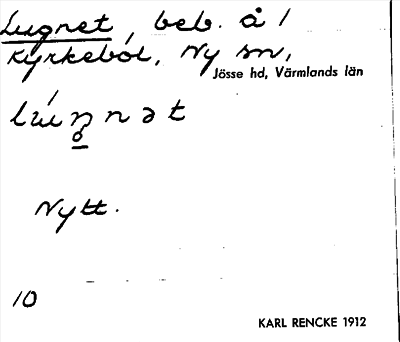 Lugnet, beb. å 1
Kyrkebol, Ny sn,
Jösse hd, Värmlands län
Nytt.
10
KARL RENCKE 1912